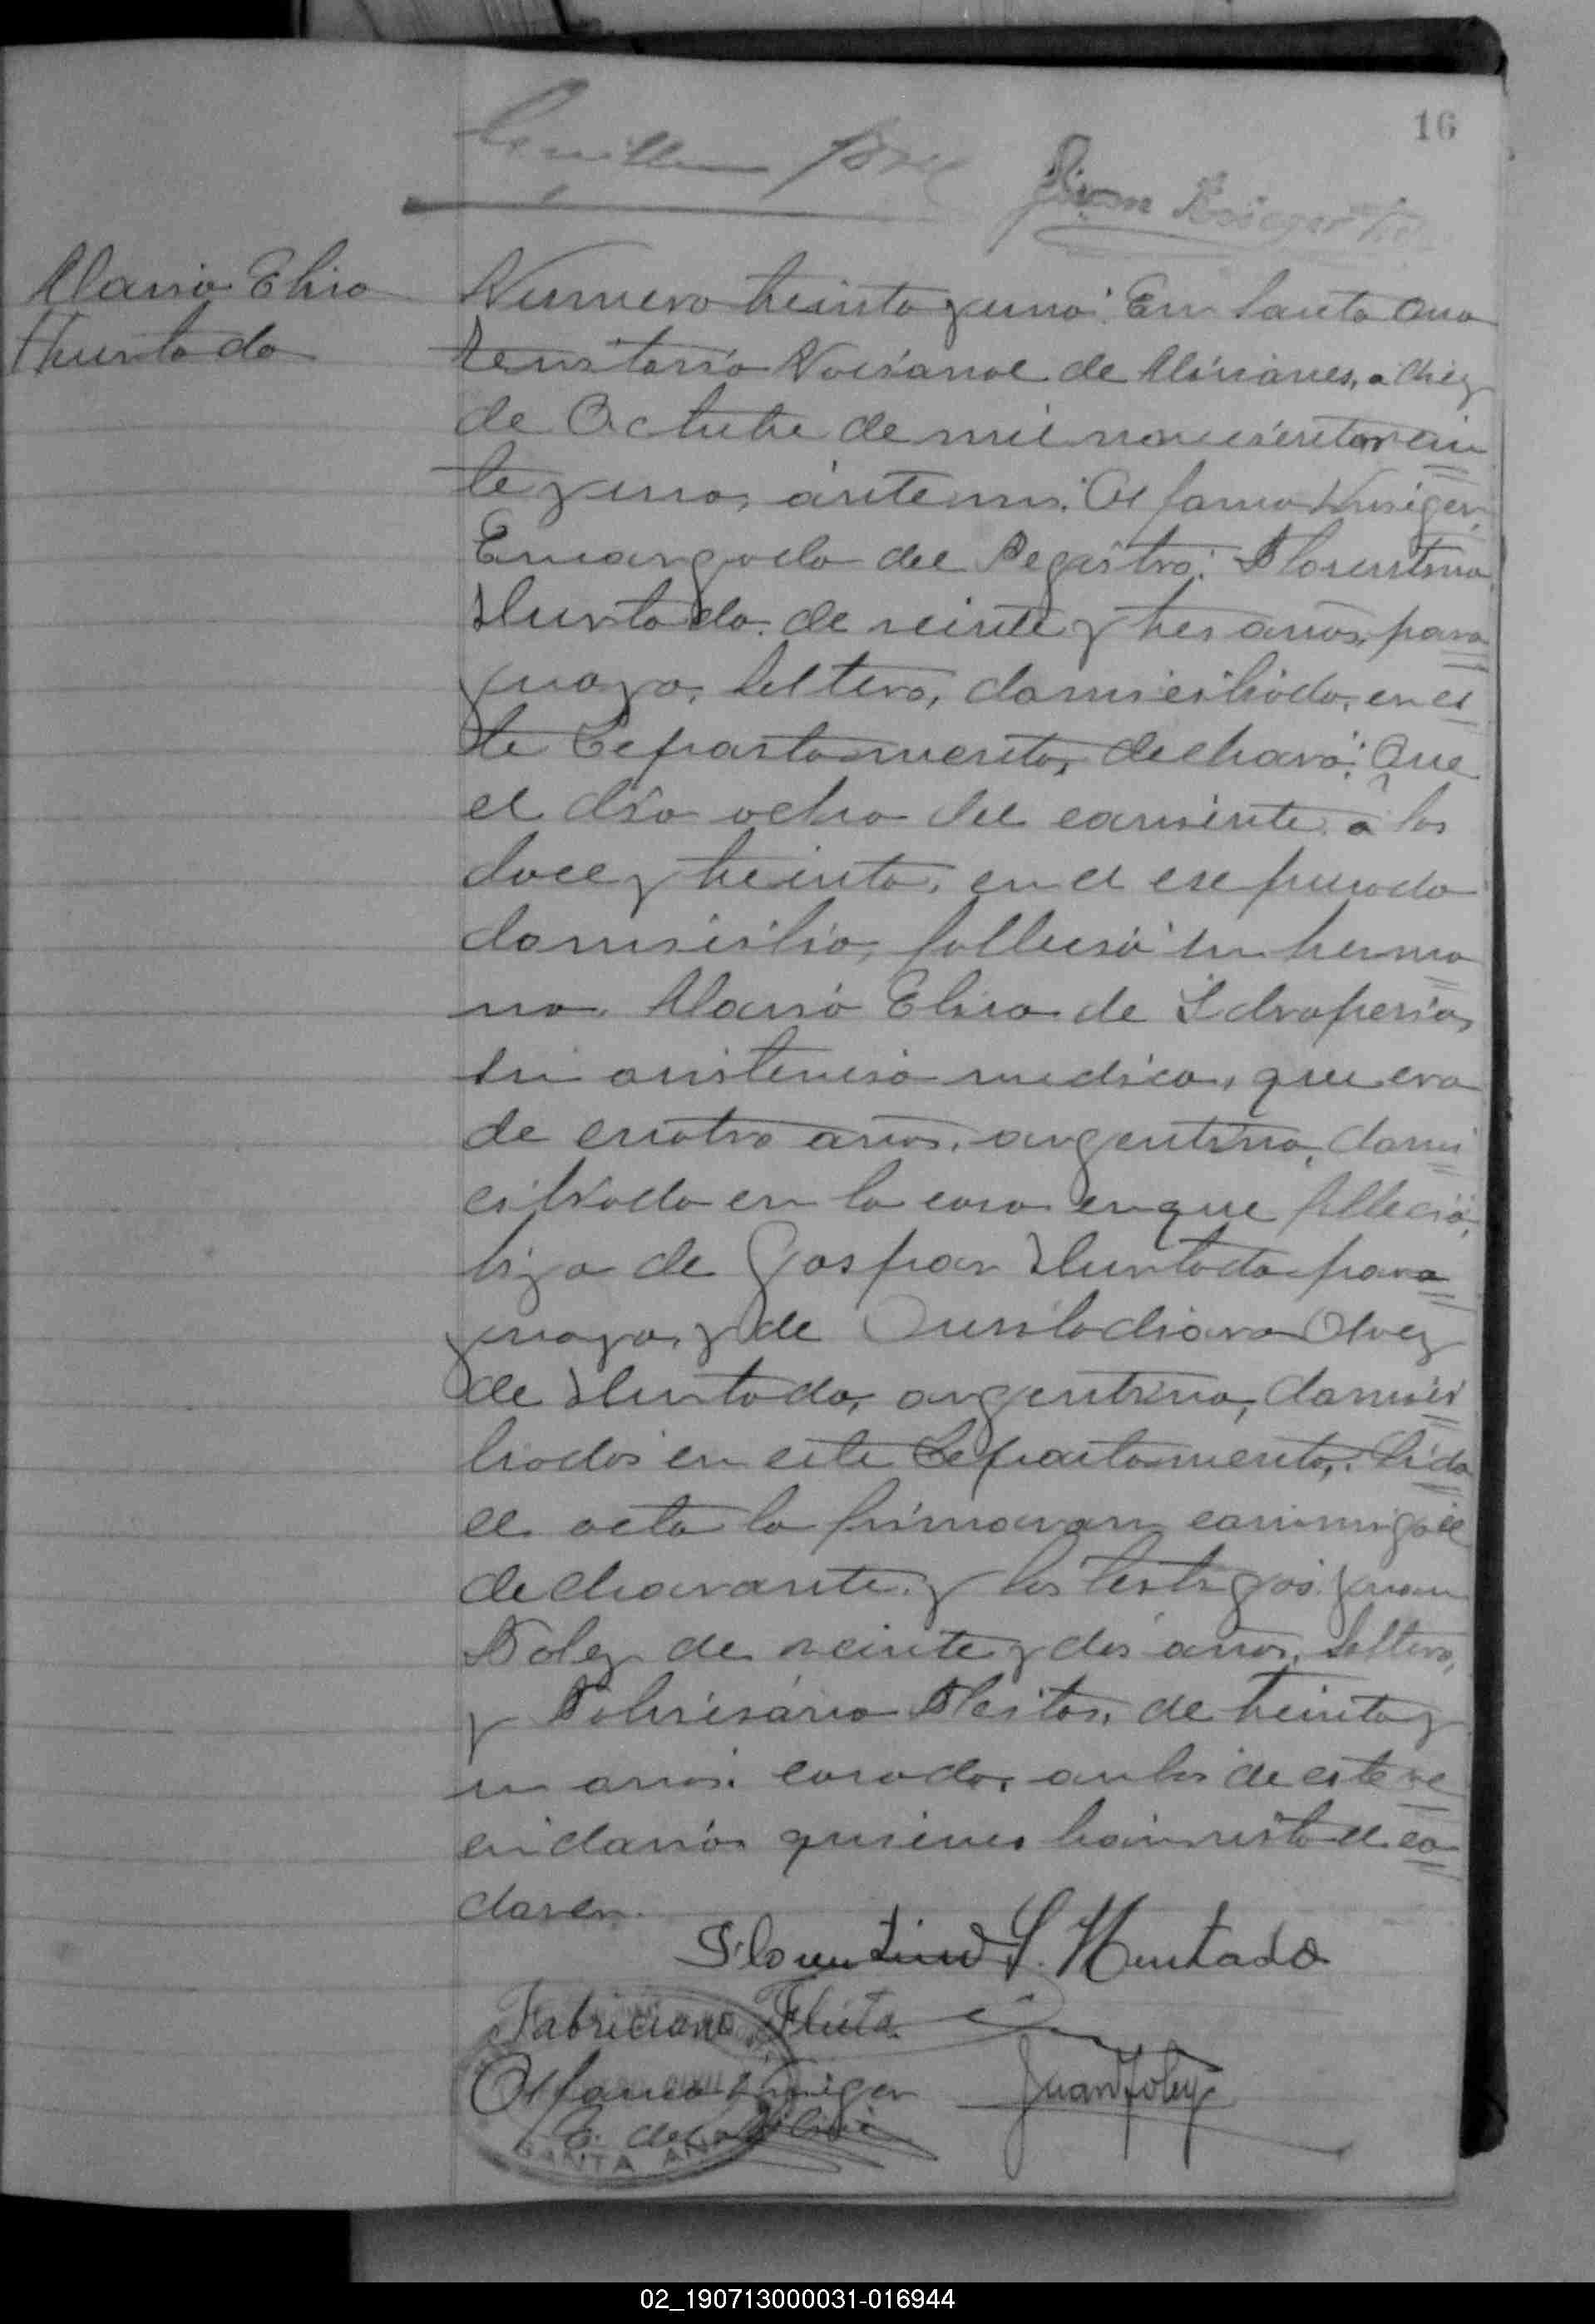 16
Maria Elisa
Hurtado
Numero treinta y uno: En Santa Ana
Territorio Nacional de Misiones, a diez
de Octubre de mil novecientos vein
te y uno, ante mi:
Encargado del Registro: Florentino
Hurtado de veinte y tres años, para
guayo, soltero, domiciliado en es
te Departamento, declaró: Que
el dia ocho del corriente a las
doce y treinta, en el expresado
domicilio, falleció su herma
na Maria Elisa de Idropesia,
sin asistencia medica, que era
de cuatro años, argentina, domi
ciliada en la casa en que falleció,
hija de Gaspar Hurtado para
guayo, y de
de Hurtado, argentina, domici
liados en este Departamento. Leida
el acta la firmaron conmigo el
declarante y los testigos Juan
Foley de veinte y dos años, soltero,
y Fabriciano Fleitas, de treinta y
un años, casado, ambos de este ve
cindario quienes han visto el ca
daver.
Florentino S. Hurtado
Fabriciano Fleita
Juan Foley
SANTA ANA
02_190713000031-016944